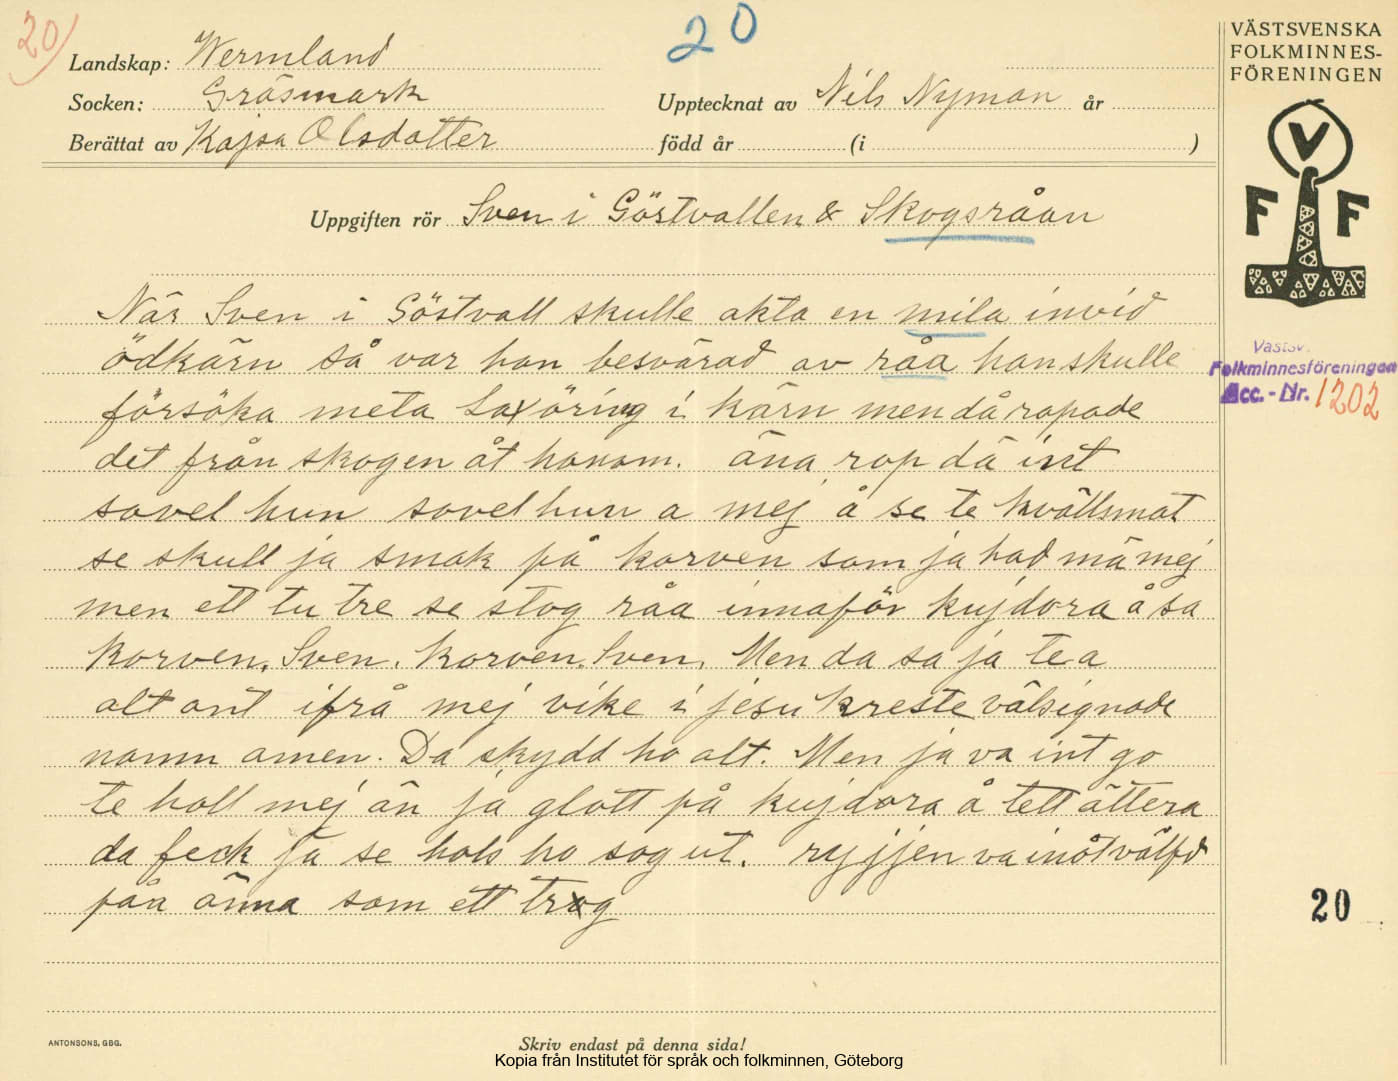 20)
20
Landskap: Wermland
Socken: Gräsmark
Upptecknat av Nils Nyman år
Berättat av Kajsa Olsdotter
född år (i )
Uppgiften rör Sven i Göstvallen & Skogsråan
När Sven i Göstvall skulle akta en mila invid
ödkärn så var han besvärad av råa han skulle
försöka meta laxöring i kärn men då ropade
det från skogen åt honom. äna rop dä int
sovel hun sovel hun a mej å se te kvällsmat
se skull ja smak på korven som ja had mä mej
men ett tu tre se stog råa innaför kujdora å sa
korven, Sven, korven, Sven, Men da sa ja te a
alt ont ifrå mej vike i jesu kreste välsignade
namn amen. Da skydd ho alt. Men ja va int go
te holl mej än ja glott på kujdora å tett ättera
da feck ja se hols ho sog ut. ryjjen va inåtvälfd
påa änna som ett trog
VÄSTSVENSKA
FOLKMINNES-
FÖRENINGEN
V
F F
Västsv.
Folkminnesföreningen
Acc.-Nr. 1202
20
ANTONSONS, GBG.
Skriv endast på denna sida!
Kopia från Institutet för språk och folkminnen, Göteborg